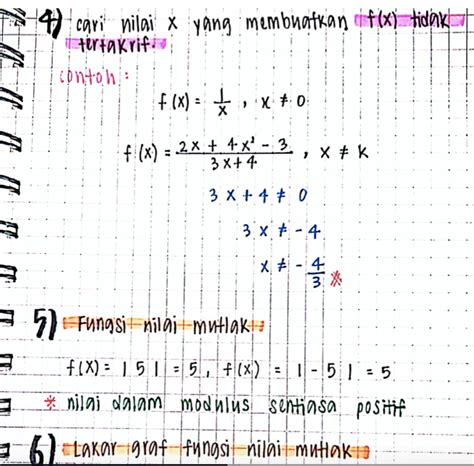 4) cari nilai x yang membuatkan f(x) tidak
tertakrif.
contoh :
f(x) = 1/x , x ≠ 0
f(x) = (2x + 4x² - 3)/(3x + 4) , x ≠ k
3x + 4 ≠ 0
3x ≠ - 4
x ≠ - 4/3 *
5) Fungsi nilai mutlak :
f(x) = | 5 | = 5 , f(x) = | - 5 | = 5
* nilai dalam modulus sentiasa positif
6) Lakar graf fungsi nilai mutlak